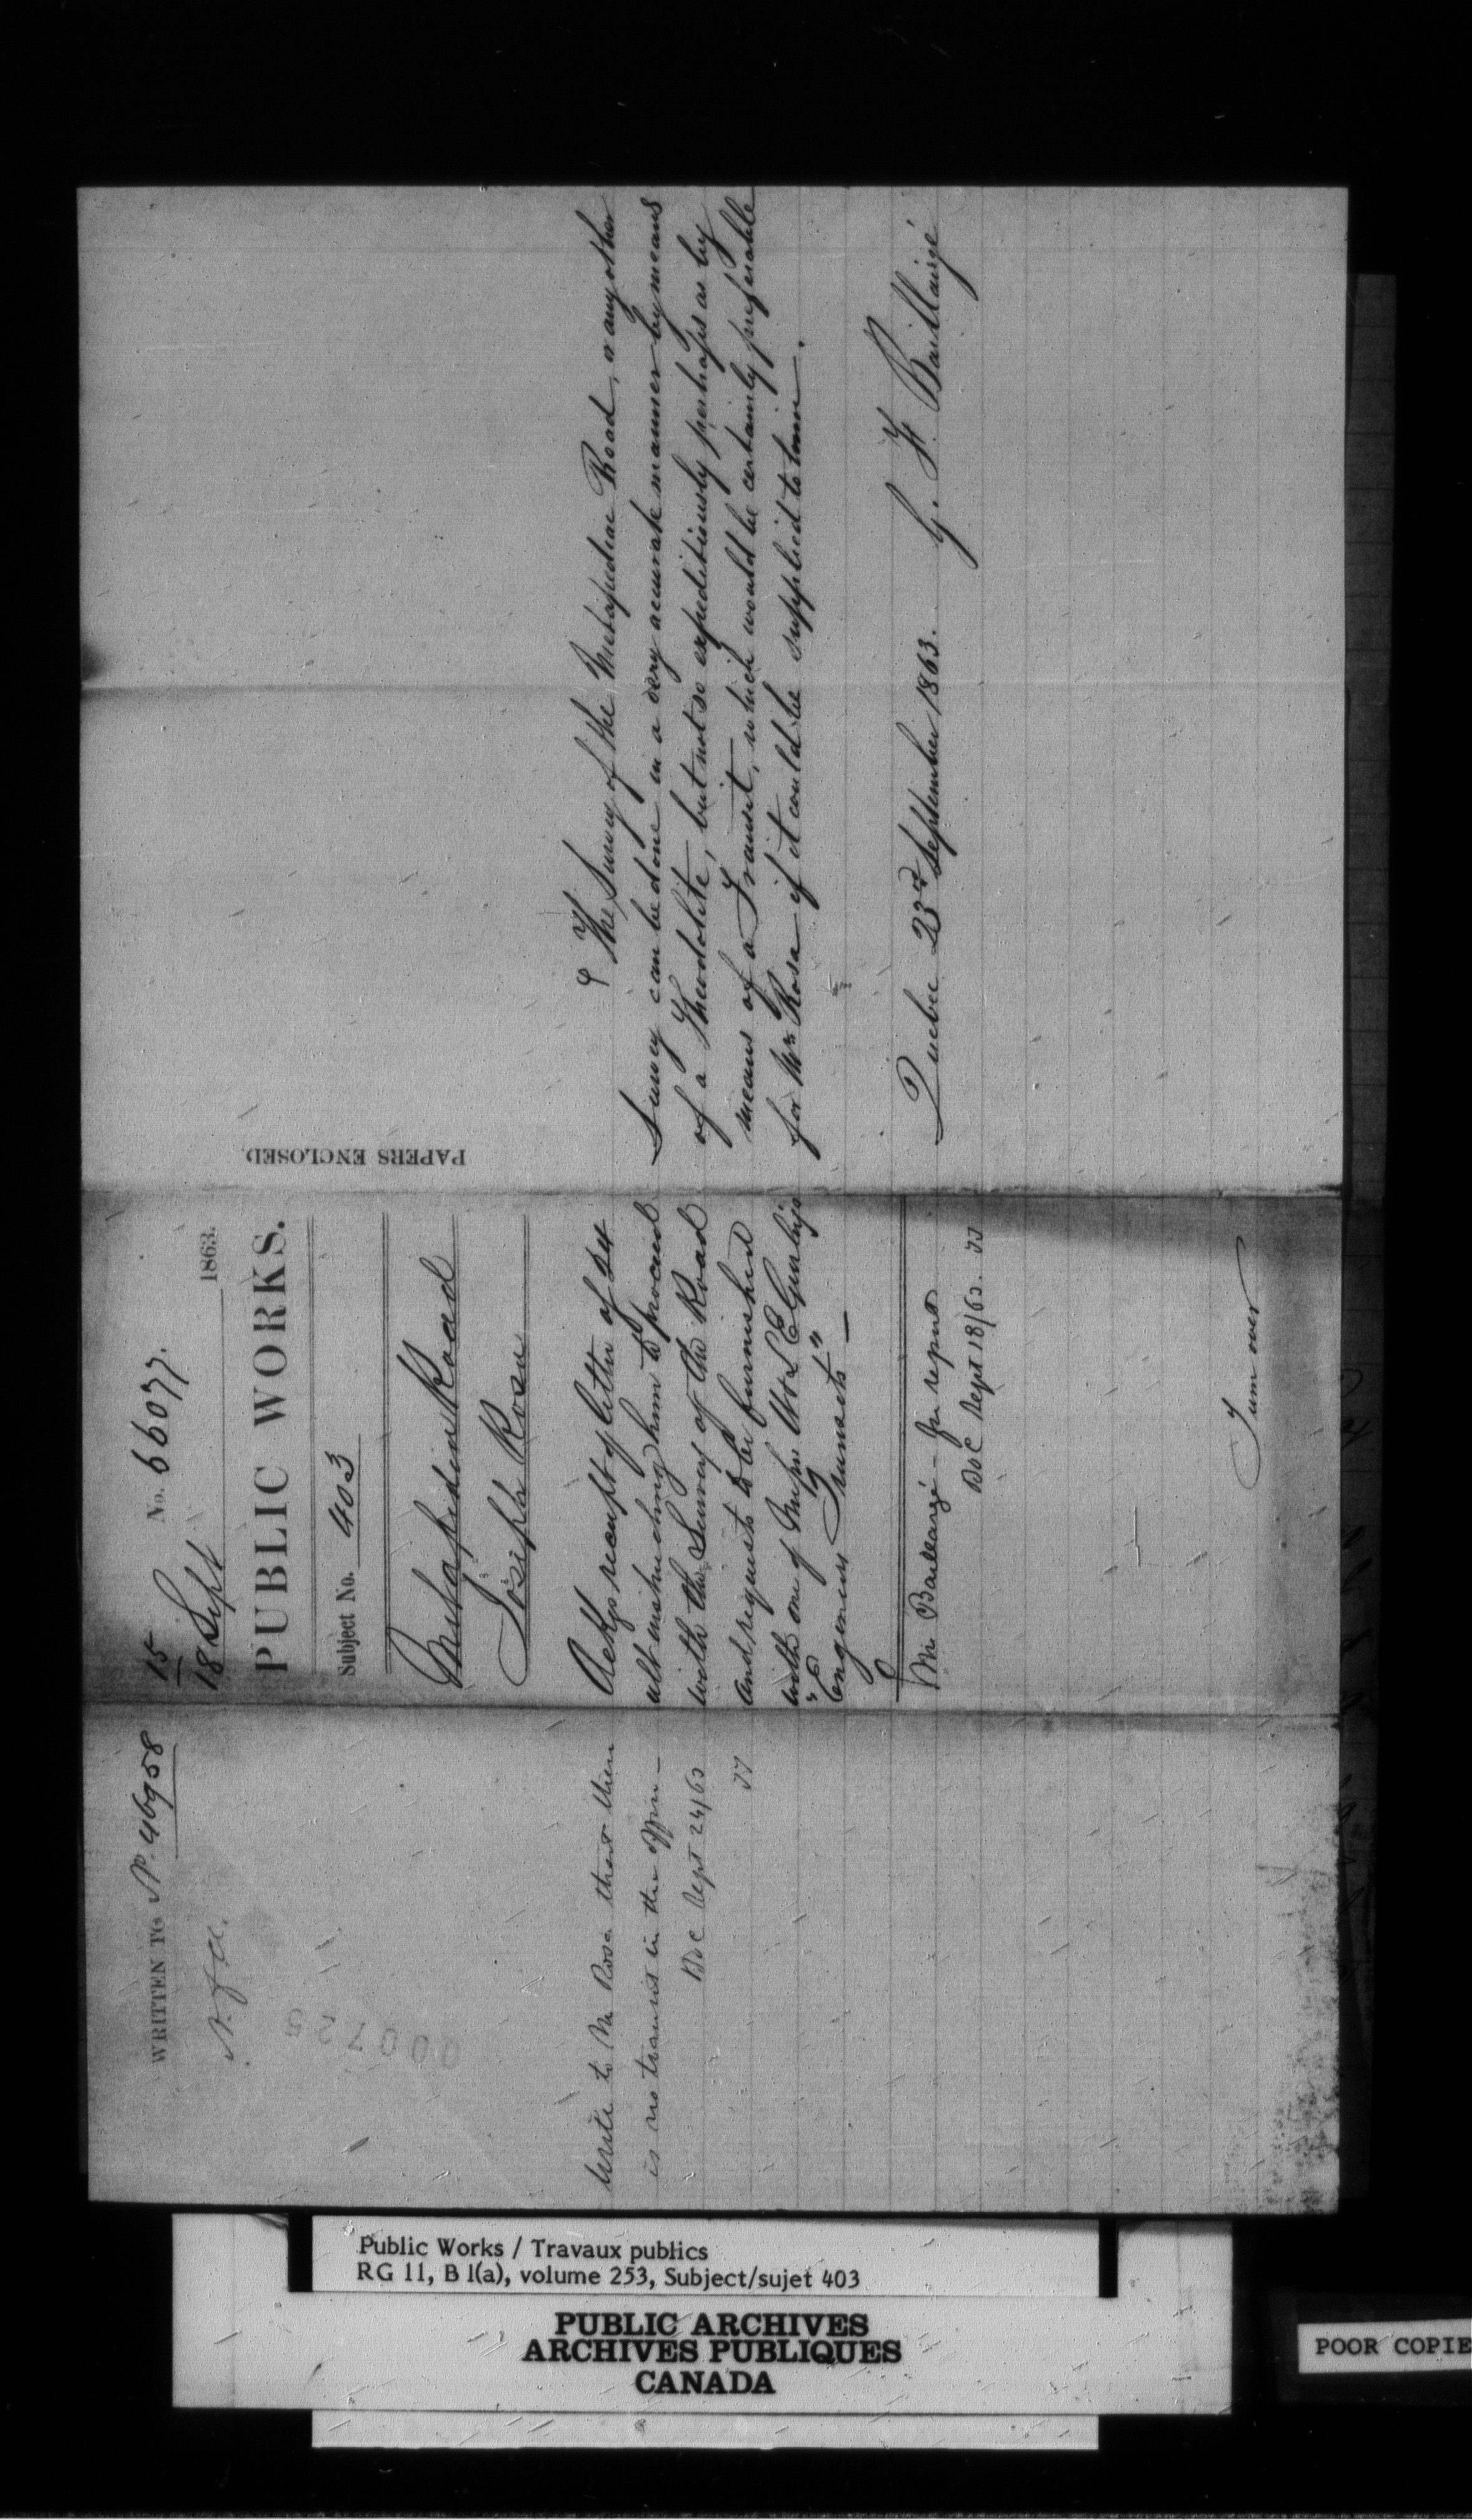 WRITTEN TO No. 46958
Write to Mr Rosa that there
is no transit in the office —
Sept 24/63
TT
000725
15
18 Sept 1863.
No. 66077.
PUBLIC WORKS.
Subject No. 403
Metapedia Road
Joseph Rosa
Ackgs receipt of letter of 24
ult instructing him to proceed
with the Survey of the Road
and requests to be furnished
with one of Messrs W & L E Gurley's
"Engineers Transits" —
Mr Baillargé – for report
Sept 18/63. TT
Turn over
PAPERS ENCLOSED.
The Survey of the Metapediac Road, or any other
Survey can be done in a very accurate manner by means
of a Theodolite, but not so expeditiously perhaps as by
means of a Transit, which would be certainly preferable
for Mr. Rosa if it could be supplied to him.
Quebec 23rd September 1863. G. F. Baillairgé
Public Works / Travaux publics
RG 11, B 1(a), volume 253, Subject/sujet 403
PUBLIC ARCHIVES
ARCHIVES PUBLIQUES
CANADA
POOR COPIE